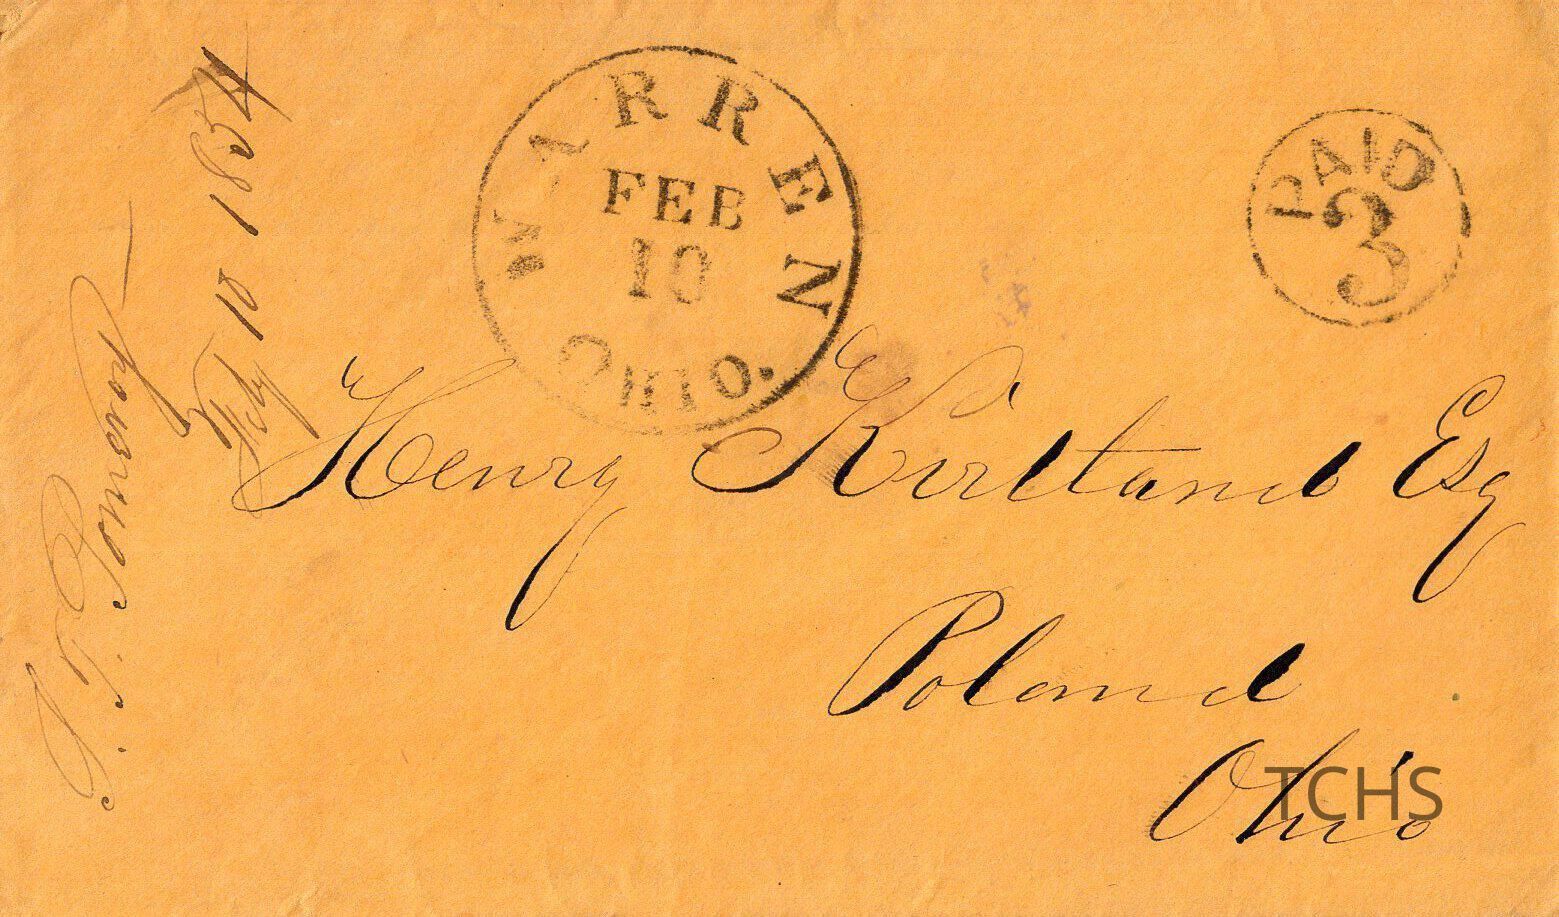 WARREN
FEB
10
OHIO.
PAID
3
Henry Kirtland Esq
Poland
Ohio
TCHS
Pomeroy
Feby 10 1854